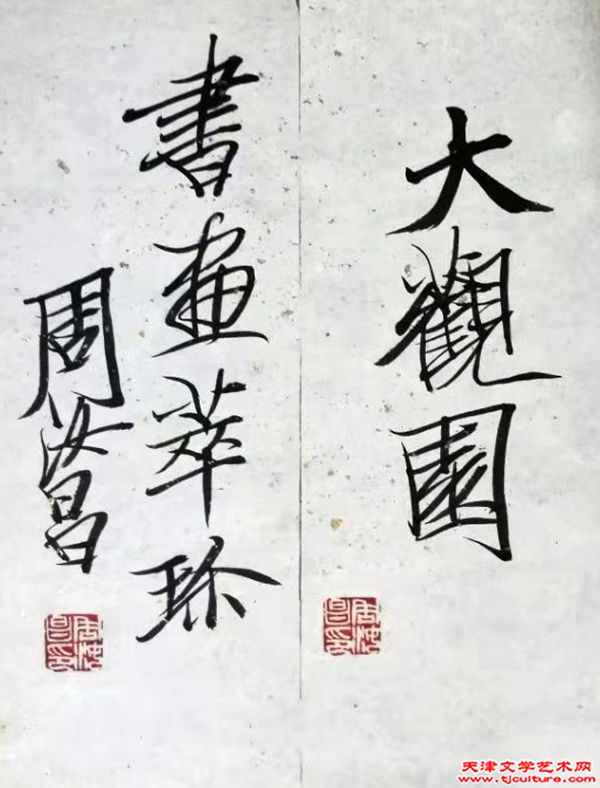 大觀園
書畫萃珎
周汝昌
周汝昌印
周汝昌印
天津文学艺术网
www.tjculture.com